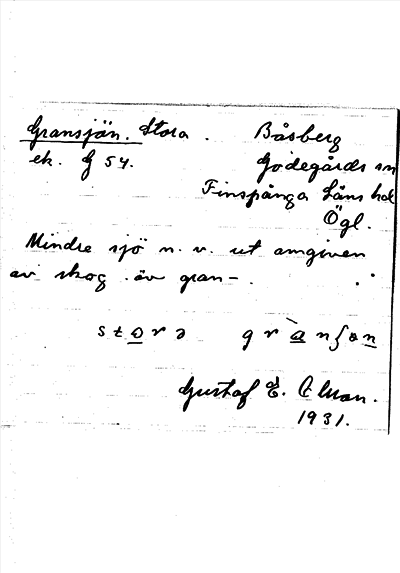 Gransjön. Stora. Båsberg
ek. G 54. Godegårds sn
Finspånga läns hd
Ögl.
Mindre sjö n. v. ut omgiven
av skog. av gran-.
stɷrə grànʃɵn
Gustaf E.
1931.